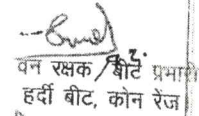 वन रक्षक/बीट प्रभारी
हर्दी बीट, कोन रेंज